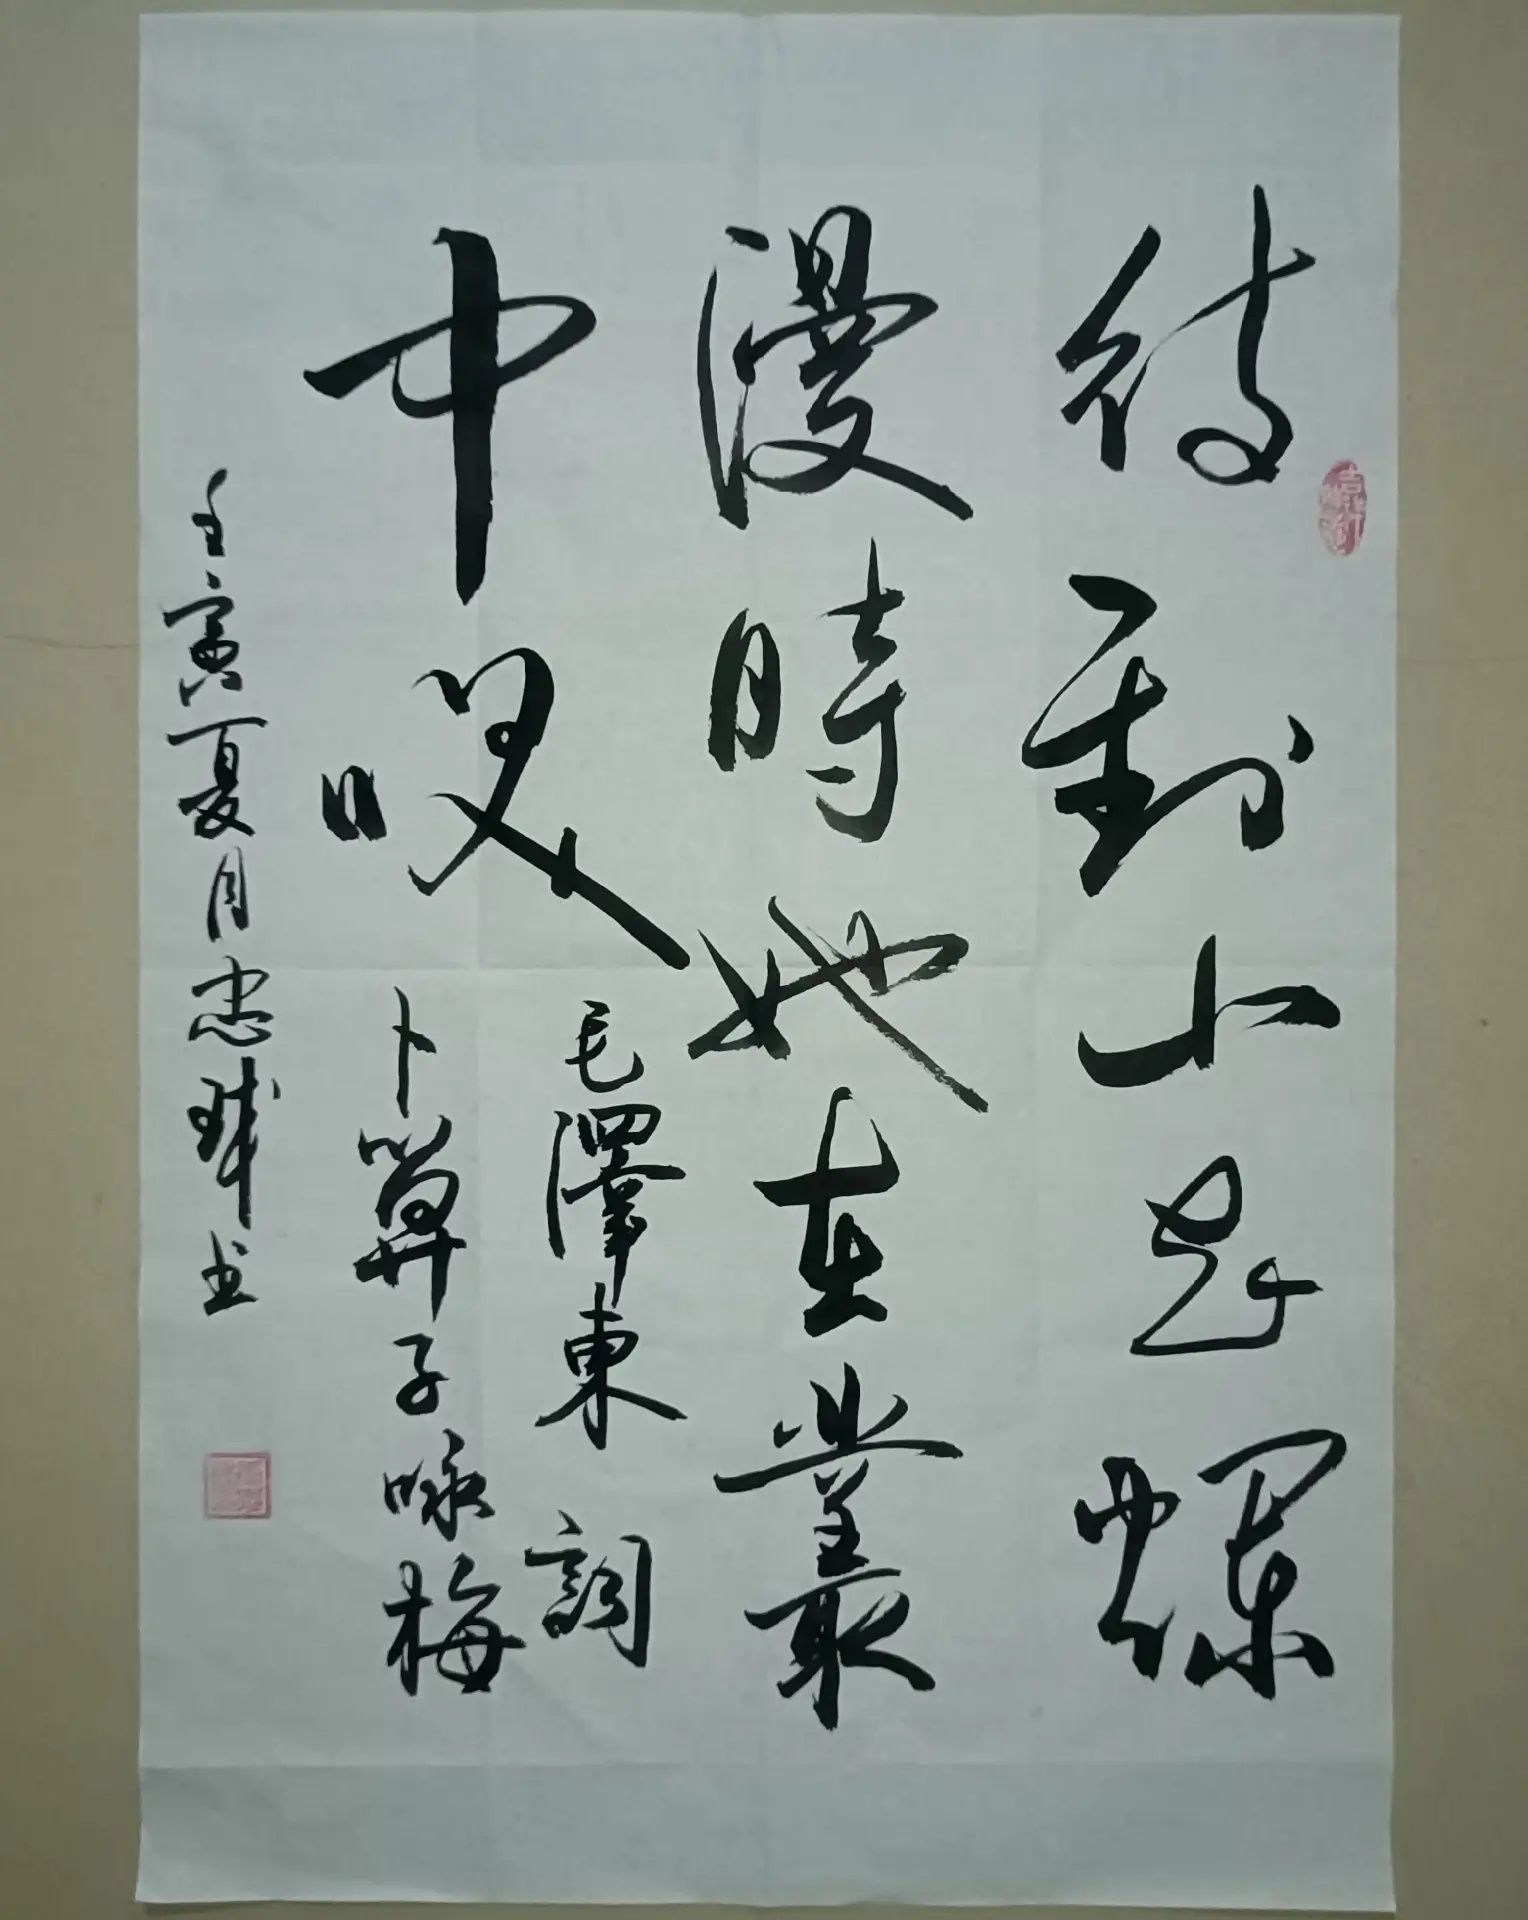 待到山花爛
漫時她在叢
中咲
毛澤東詞
卜算子咏梅
壬寅夏月忠球书